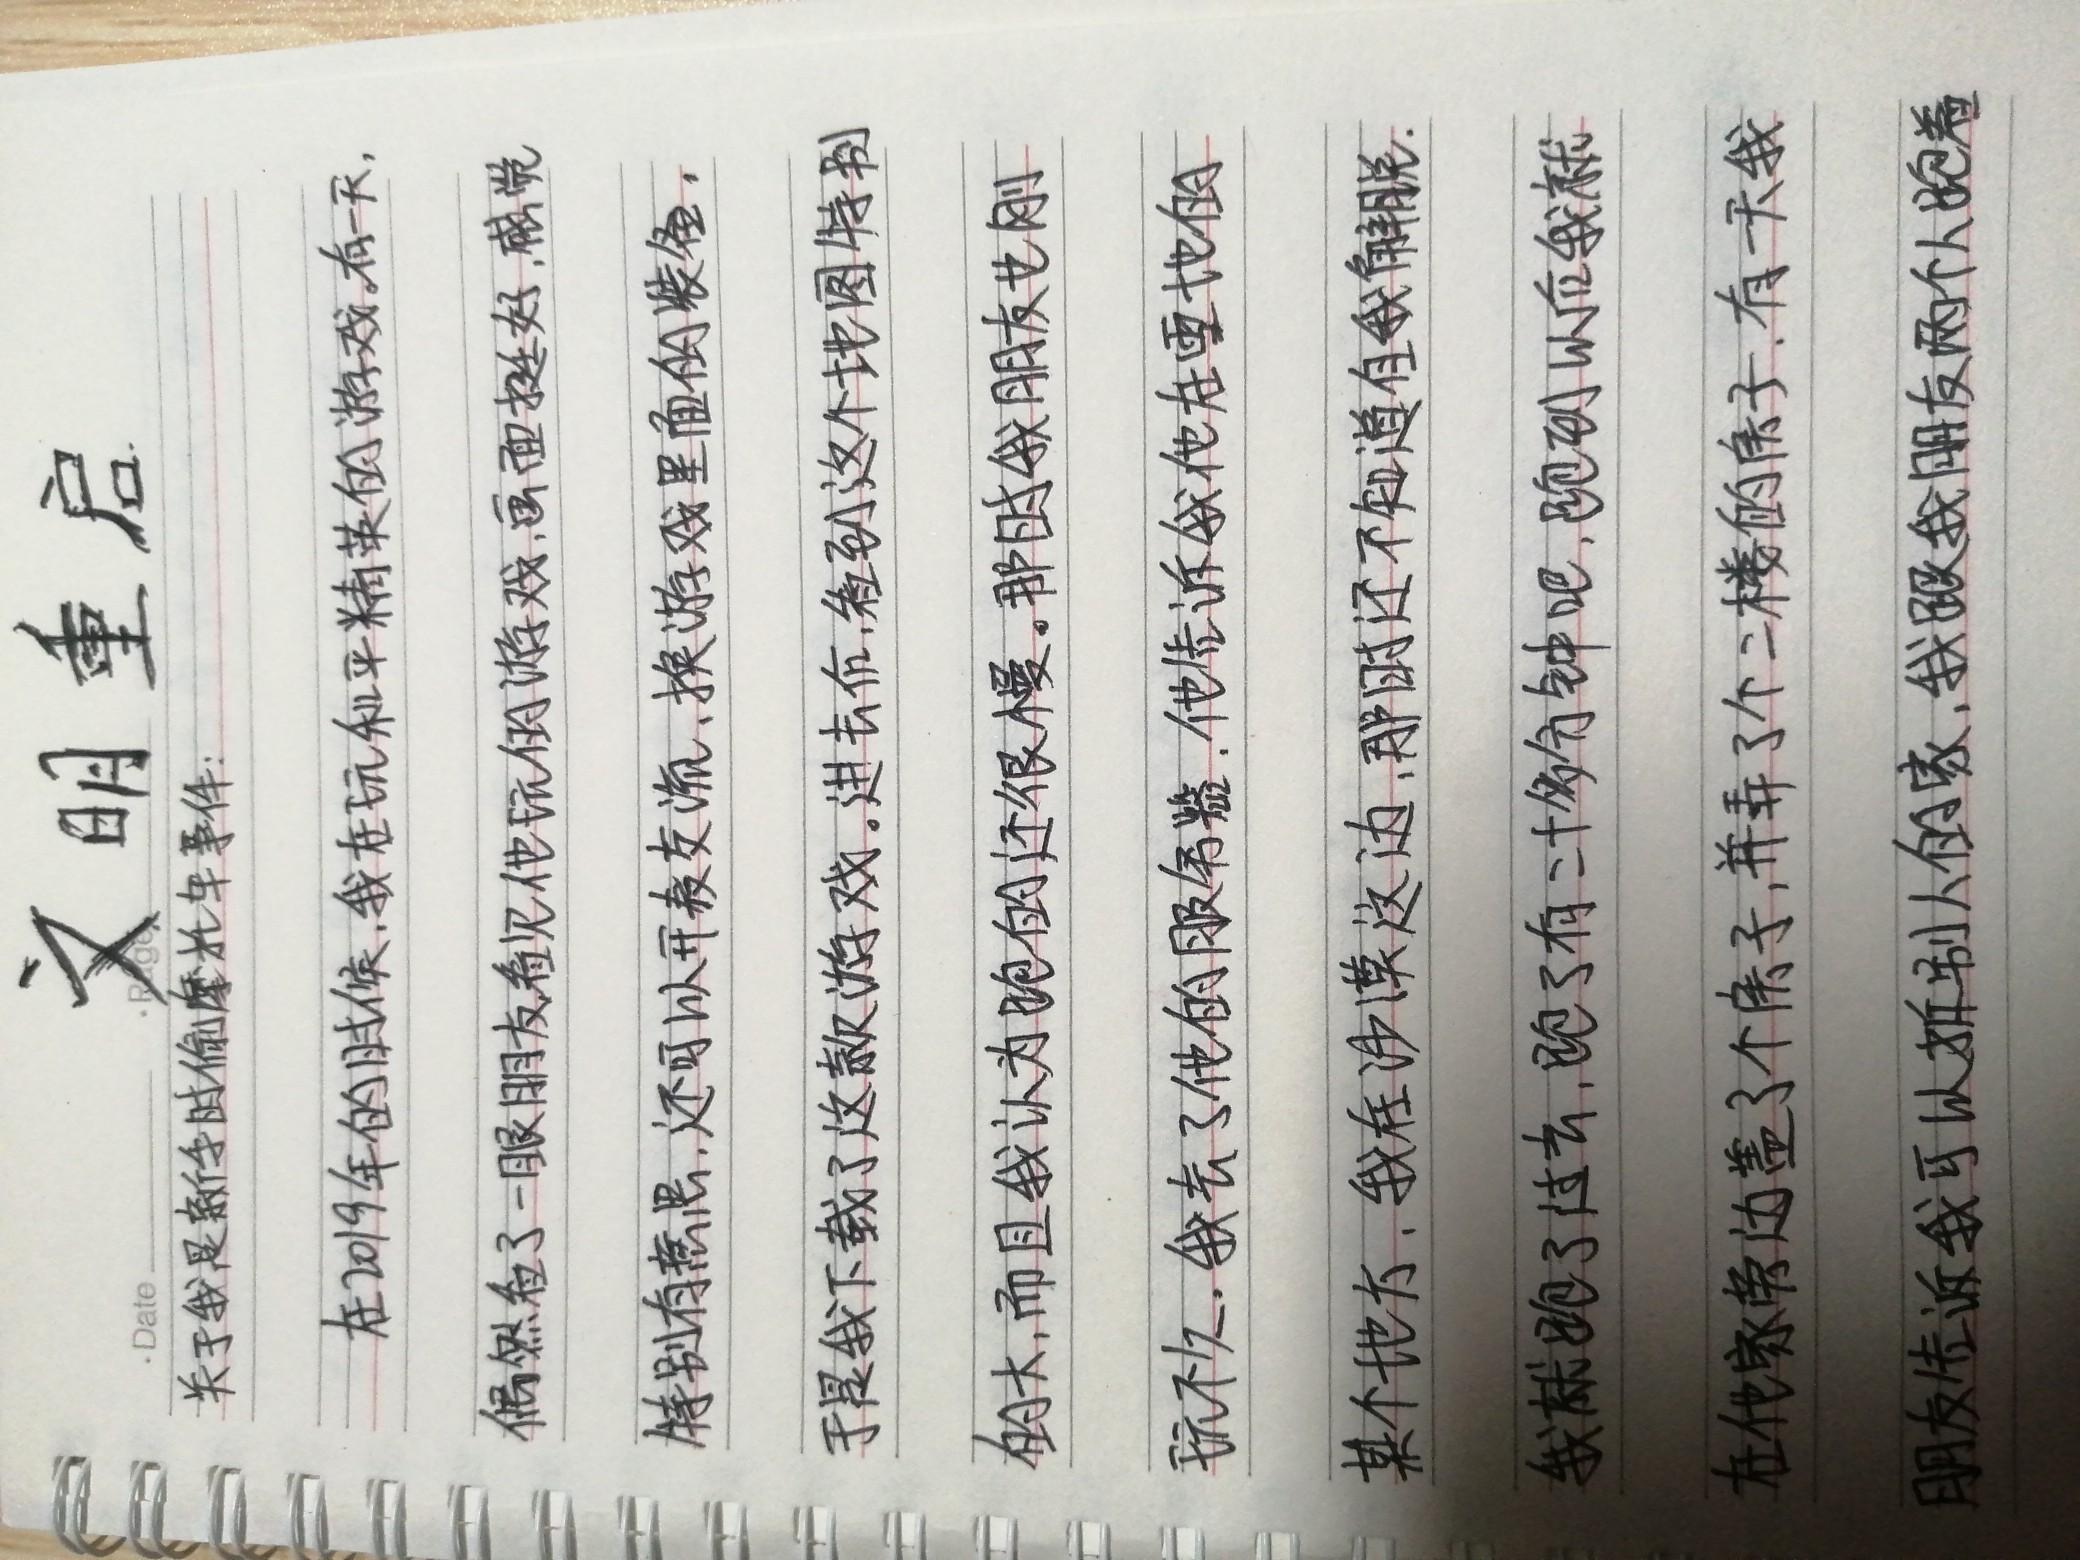 文明重启
·Date
·Page
关于我是新手时偷摩托车事件:
在2019年的时候,我在玩和平精英的游戏。有一天,
偶然看了一眼朋友,看见他玩的游戏,画面挺好,感觉
特别有意思,还可以开麦交流、换游戏里面的装备,
于是我下载了这款游戏。进去后,看到这个地图特别
的大,而且我认为跑的还很慢。那时我朋友也刚
玩不久,我去了他的服务器,他告诉我他在雪地的
某个地方,我在沙漠这边,那时还不知道自我解脱.
我就跑了过去,跑了有二十多分钟吧,跑到以后我就
在他家旁边盖了个房子,并弄了个二楼的房子.有一天我
朋友告诉我可以抓别人的家,我跟我朋友两个人跑着